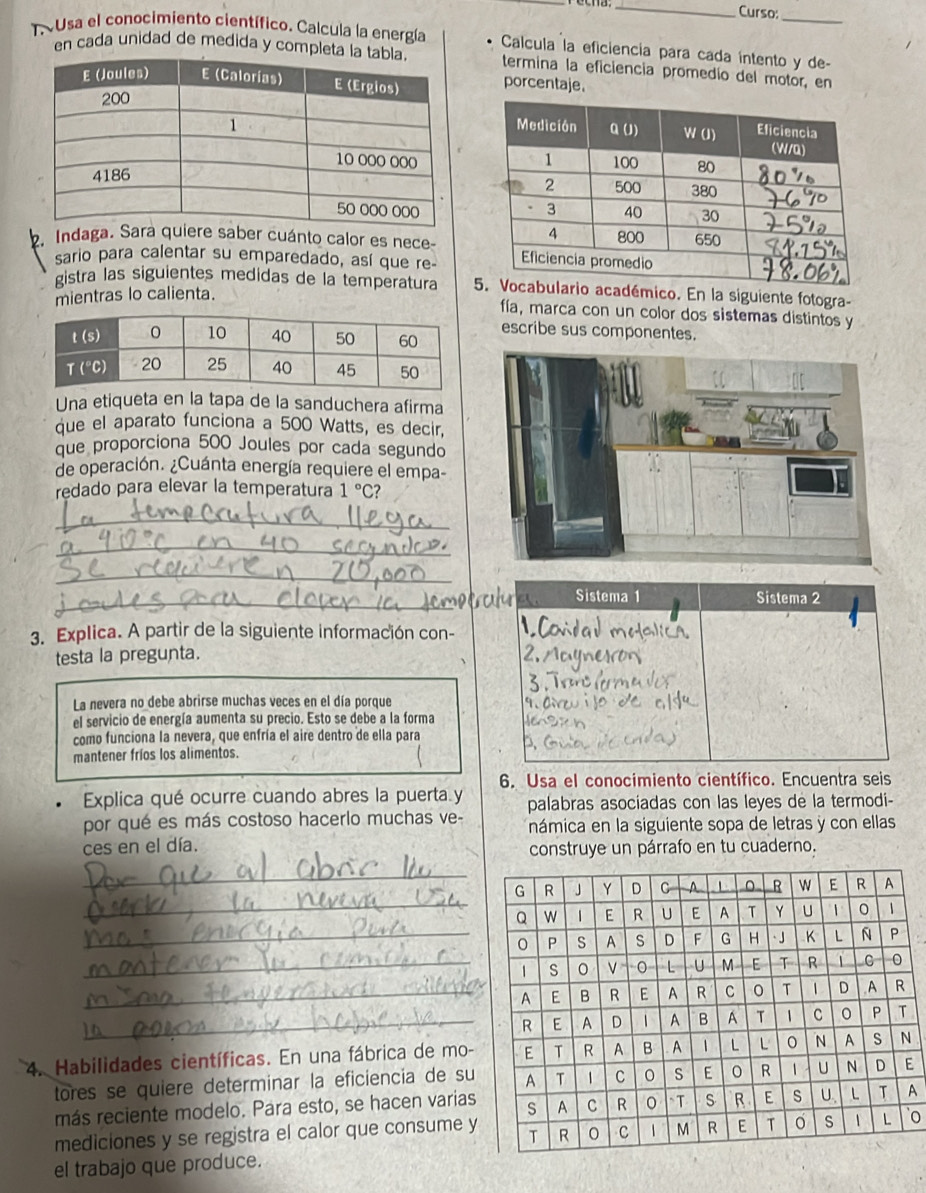 Curso:
1. Usa el conocimiento científico. Calcula la energía
en cada unidad de medida y completa la tabla.
E (Joules) E (Calorías) E (Ergios)
200
1
10 000 000
4186
50 000 000
2. Indaga. Sara quiere saber cuánto calor es nece-
sario para calentar su emparedado, así que re-
gistra las siguientes medidas de la temperatura
mientras lo calienta.
t (s) 0 10 40 50 60
T (°C) 20 25 40 45 50
Una etiqueta en la tapa de la sanduchera afirma
que el aparato funciona a 500 Watts, es decir,
que proporciona 500 Joules por cada segundo
de operación. ¿Cuánta energía requiere el empa-
redado para elevar la temperatura 1 °C?
La temperatura llega
a 40°c en 40 segundos.
Se requieren 20,000
joules para elever la temperatura.
3. Explica. A partir de la siguiente información con-
testa la pregunta.
La nevera no debe abrirse muchas veces en el día porque
el servicio de energía aumenta su precio. Esto se debe a la forma
como funciona la nevera, que enfría el aire dentro de ella para
mantener fríos los alimentos.
• Explica qué ocurre cuando abres la puerta y
por qué es más costoso hacerlo muchas ve-
ces en el día.
Por que al abrir la
puerta, la nevera usa
mas energia para
mantener la comida a
misma temperatura
la
4. Habilidades científicas. En una fábrica de mo-
tores se quiere determinar la eficiencia de su
más reciente modelo. Para esto, se hacen varias
mediciones y se registra el calor que consume y
el trabajo que produce.
• Calcula la eficiencia para cada intento y de-
termina la eficiencia promedio del motor, en
porcentaje.
Medición Q (J) W (J) Eficiencia (W/Q)
1 100 80 80%
2 500 380 76%
3 40 30 75%
4 800 650 81.25%
Eficiencia promedio 78.06%
5. Vocabulario académico. En la siguiente fotogra-
fía, marca con un color dos sistemas distintos y
escribe sus componentes.
Sistema 1 Sistema 2
1. Cavidad metalica
2. Magnetron
3. Transformador
4. circuito de alta
tension
5. Guia de ondas
6. Usa el conocimiento científico. Encuentra seis
palabras asociadas con las leyes de la termodi-
námica en la siguiente sopa de letras y con ellas
construye un párrafo en tu cuaderno.
G R J Y D C A L O R W E R A
Q W I E R U E A T Y U I O I
O P S A S D F G H J K L Ñ P
I S O V O L U M E T R I C O
A E B R E A R C O T I D A R
R E A D I A B A T I C O P T
E T R A B A I L L O N A S N
A T I C O S E O R I U N D E
S A C R O T S R E S U L T A
T R O C I M R E T O S I L O